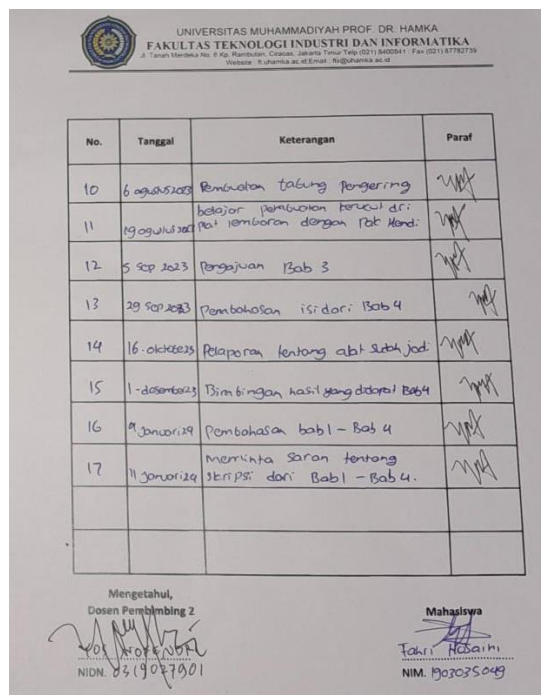 UNIVERSITAS MUHAMMADIYAH PROF. DR. HAMKA
FAKULTAS TEKNOLOGI INDUSTRI DAN INFORMATIKA
Jl. Tanah Merdeka No. 6 Kp. Rambutan, Ciracas, Jakarta Timur Telp (021) 8400941 ; Fax (021) 87782739
Website : ft.uhamka.ac.id Email : ft@uhamka.ac.id
No. Tanggal Keterangan Paraf
10 6 agustus 2023 Pembuatan tabung Pengering
belajar pembuatan kerucut dri
11 19 agustus plat lembaran dengan Pak Hendi
12 5 Sep 2023 Pengajuan Bab 3
13 29 Sep 2023 Pembahasan isi dari Bab 4
14 16-oktober23 Pelaporan tentang alat sudah jadi
15 1-desember23 Bimbingan hasil yang didapat Bab4
16 9 Januari 24 Pembahasan bab1 - Bab 4
Meminta Saran tentang
17 11 Januari 24 skripsi dari Bab1 - Bab 4.
Mengetahui,
Dosen Pembimbing 2 Mahasiswa
Fahri Husaini
NIDN. 0319027901 NIM. 1903035049